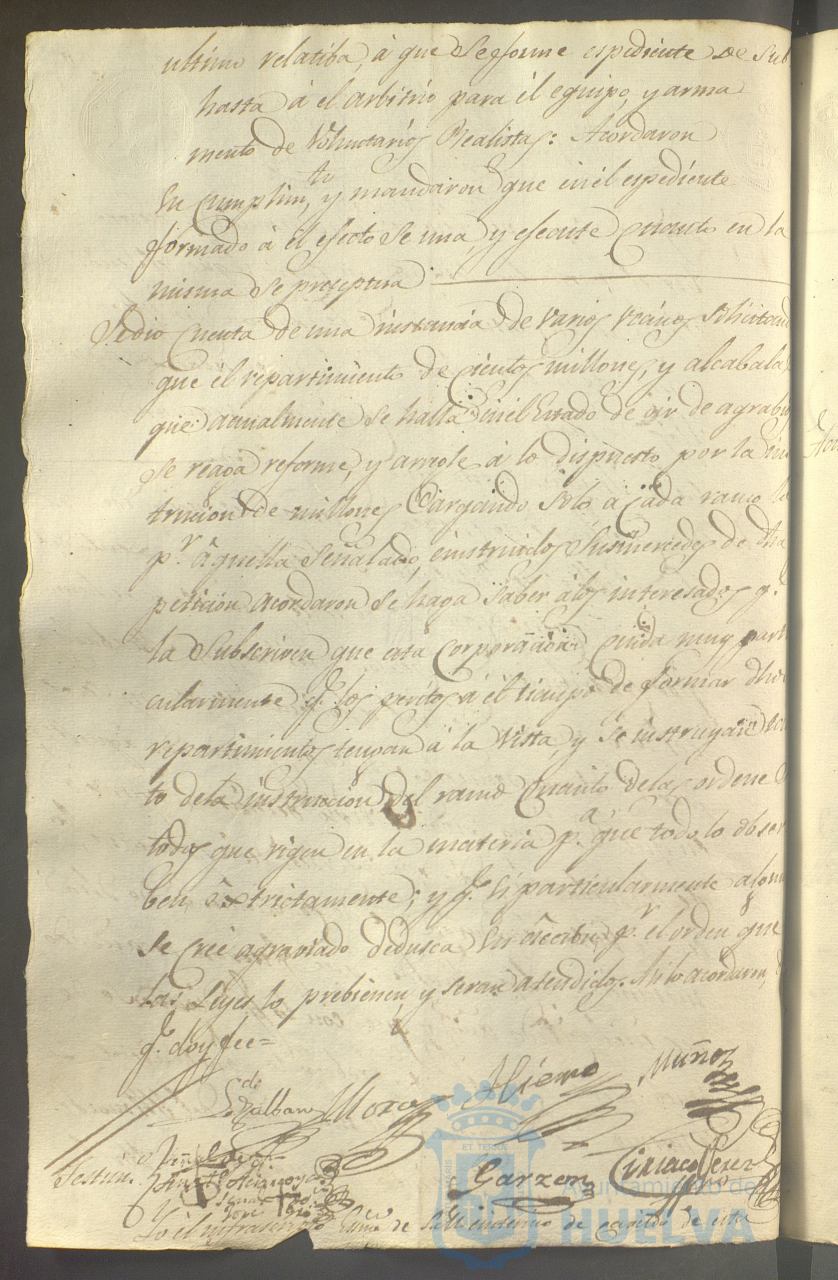 ultimo relatiba, á que se forme espediente de Sub
hasta á el arbitrio para él equipo, y arma
mento de Voluntarios Realistas: Acordaron
En Cumplim.to y mandaron que en él espediente
formado á él efecto se una, y esecute quanto en la
misma se preseptua
Se dio cuenta de una instancia de varios vecinos solicitand
que él repartimiento de cientos, millones, y alcabalas
que actualmente se halla en él Estado de oir de agrabios
se reaga reforme, y arregle á lo dispuesto por la ins
trucion de millones Cargando solo a cada ramo lo
p.r aquella señalado, é instruidos Sus mercedes de dha
peticion acordaron se haga saber a los interesados q.e
la Subscriven que esta Corporacion cuida muy parti
cularmente q.e los peritos á él tiempo de formar dhos
repartimientos tengan á la vista, y se instruyan
to de la instrucion del ramo quanto de las ordenes
todas que rigen en la materia p.a que todo lo obser
ben extrictamente; y q.e si particularmente alguno
se cree agraviado dedusca su accion p.r el orden que
las Leyes lo prebienen, y seran atendidos. Asi lo acordaron,
q.e doy fee=
Moro Muñoz
Garzon Ciriaco Perez
Testim.
Yo él infraescripto Ess.no de S. M. de cavildo de esta
ET TERRA
Ayuntamiento de
HUELVA